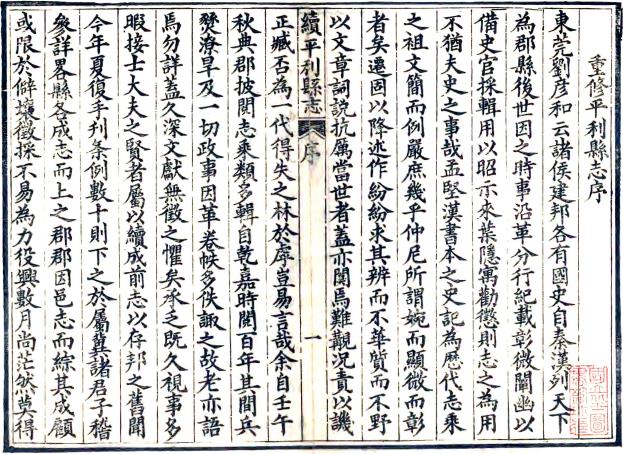 重修平利縣志序
東莞劉彥和云諸侯建邦各有國史自秦漢列天下
為郡縣後世因之時事沿革分行紀載彰微闡幽以
備史官採輯用以昭示來葉隱寓勸懲則志之為用
不猶夫史之事哉孟堅漢書本之史記為歷代志乘
之祖文簡而例嚴庶幾乎仲尼所謂婉而顯微而彰
者矣遷固以降述作紛紛求其辨而不華質而不野
以文章詞說抗厲當世者蓋亦闃焉難覯況責以譏
續平利縣志 序 一
正臧否為一代得失之林於虖豈易言哉余自壬午
秋典郡披閱志乘類多輯自乾嘉時閱百年其間兵
燹潦旱及一切政事因革卷帙多佚諏之故老亦語
焉勿詳蓋久深文獻無徵之懼矣承乏既久視事多
暇接士大夫之賢者屬以續成前志以存邦之舊聞
今年夏復手刊条例數十則下之於屬冀諸君子稽
參詳畧縣各成志而上之郡郡因邑志而綜其成顧
或限於僻壤徵採不易為力役興數月尚茫然莫得